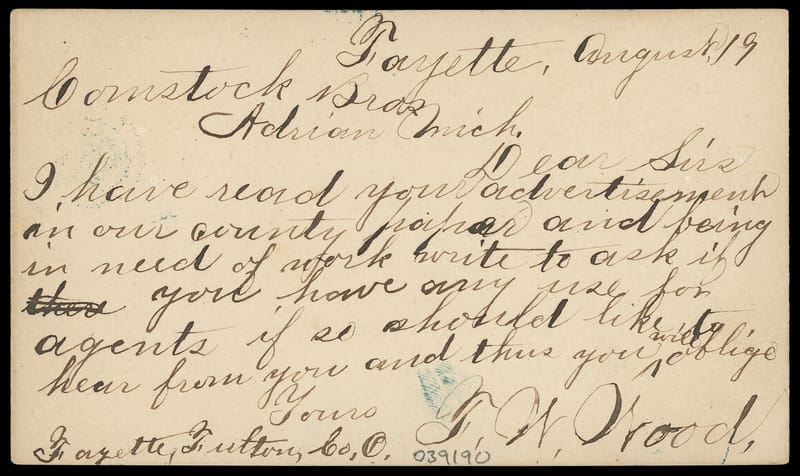 Fayette, August, 19
Comstock Bros
Adrian Mich.
Dear Sirs
I have read your advertisement
in our county paper and being
in need of work write to ask if
you have any use for
agents if so should like to
hear from you and thus you will oblige
Yours
F. W. Wood,
Fayette, Fulton, Co, O.
039190